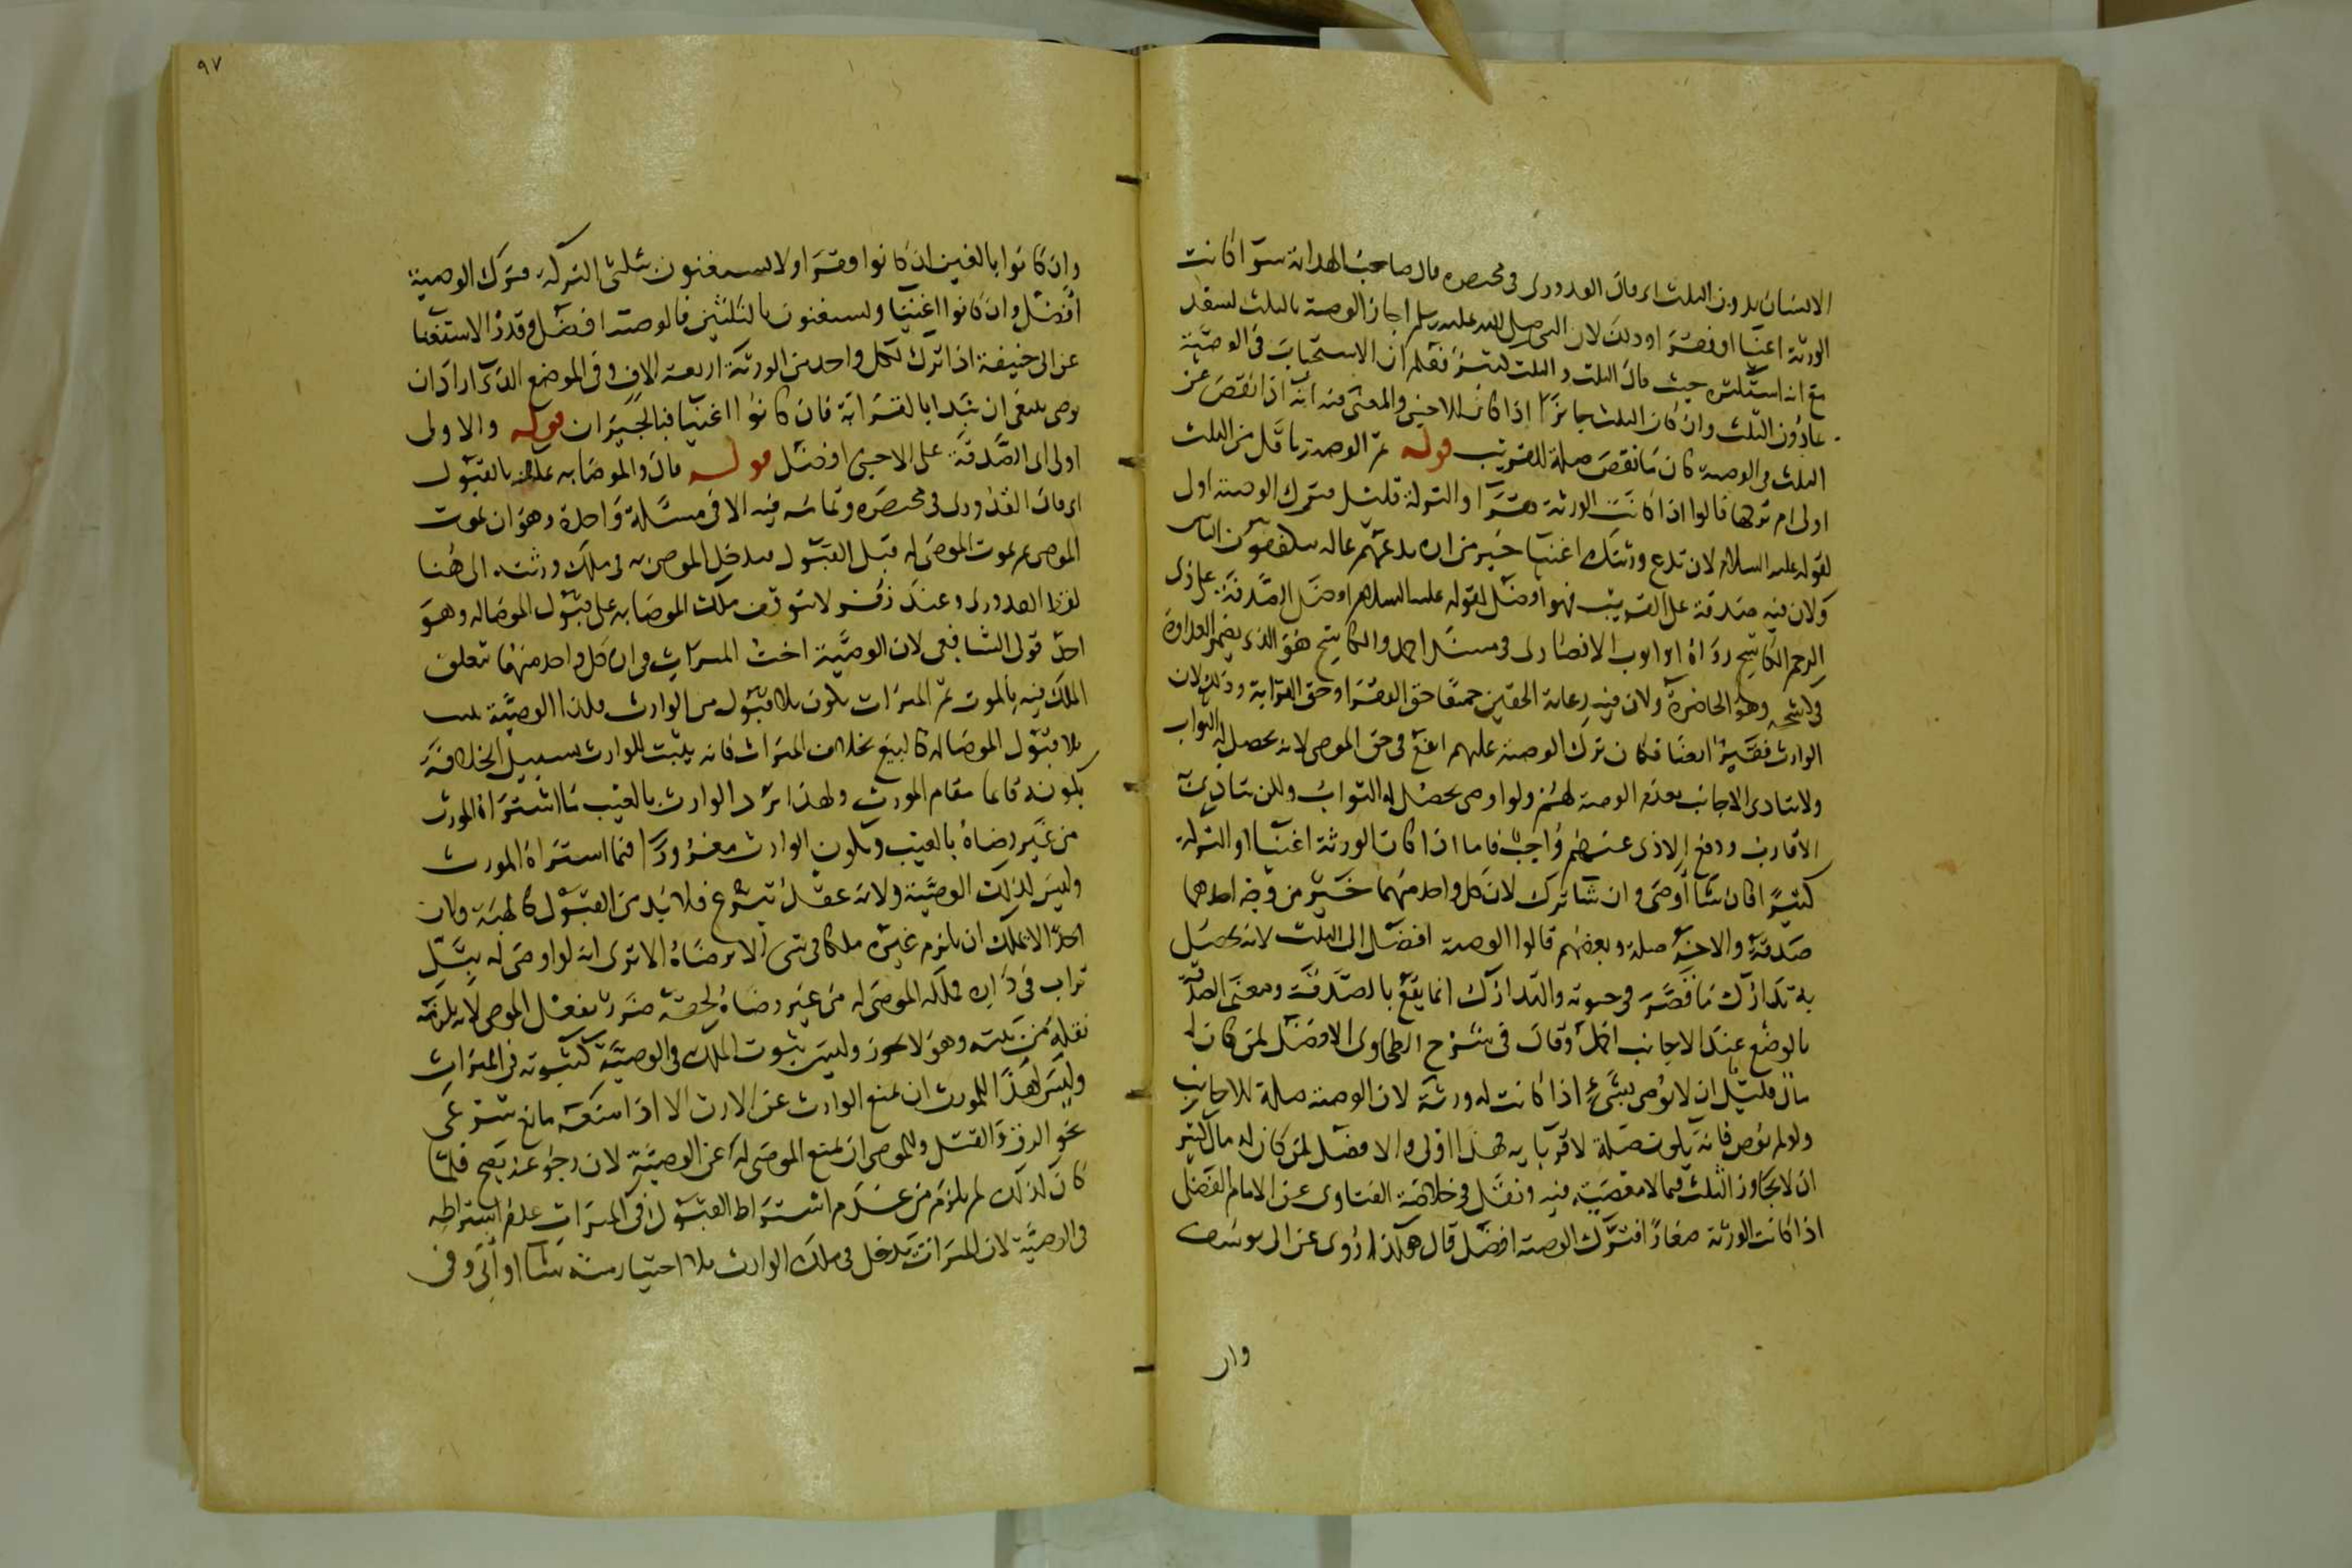 الانسان بدون الثلث اى قال القدورى فى مختصره قال صاحب الهداية سوا كانت
الورثة اغنيا او فقرا وذلك لان النبى صلى الله عليه وسلم اجاز الوصية بالثلث لسعد
مع انه استكثره حيث قال الثلث والثلث كثير فعلم ان الاستحباب فى الوصية
بمادون الثلث وان كان الثلث جائزا اذا كان للاجنبى والمعنى فيه انه اذا نقص عن
الثلث فى الوصية كان ما نقص صلة للقريب قوله ثم الوصية باقل من الثلث
اولى ام تركها قالوا اذا كانت الورثة فقرا والتركة قليلة فترك الوصية اولى
لقوله عليه السلام لان تدع ورثتك اغنيا خير من ان تدعهم عالة يتكففون الناس
ولان فيه صدقة على القريب فهو افضل لقوله عليه السلام افضل الصدقة على ذى
الرحم الكاشح رواه ابو ايوب الانصارى فى مسند احمد والكاشح هو الذى يضمر العداوة
فى كشحه وهو الخاصرة ولان فيه رعاية الحقين جميعا حق الفقرا وحق القرابة وذلك لان
الوارث فقير ايضا فكان ترك الوصية عليهم انفع فى حق الموصى لانه يحصل له الثواب
ولا يتأذى الاجانب بعدم الوصية لهم ولو اوصى يحصل له الثواب ولكن يتأذى به
الاقارب ودفع الاذى عنهم واجب فاما اذا كانت الورثة اغنيا او التركة
كثيرة فان شا اوصى وان شا ترك لان كل واحد منهما خير من وجه احدهما
صدقة والاخر صلة وبعضهم قالوا الوصية افضل الى الثلث لانه يحصل
به تدارك ما قصر فى حيوته والتدارك انما يقع بالصدقة ومعنى الصدقة
بالوضع عند الاجانب اكمل وقال فى شرح الطحاوى الافضل لمن كان له
مال قليل ان لا يوصى بشىء اذا كانت له ورثة لان الوصية صلة للاجانب
ولو لم يوص فانه يكون صلة لاقربايه فهذا اولى والافضل لمن كان له مال كثير
ان لا يجاوز الثلث فيما لا معصية فيه ونقل فى خلاصة الفتاوى عن الامام الفضلى
اذا كانت الورثة صغارا فترك الوصية افضل قال هكذا روى عن ابى يوسف
وان
٩٧
وان كانوا بالغين ان كانوا فقرا ولا يستغنون بثلثى التركة فترك الوصية
افضل وان كانوا اغنيا ويستغنون بالثلثين فالوصية افضل وقدر الاستغنا
عن ابى حنيفة اذا ترك لكل واحد من الورثة اربعة الاف وفى الموضع الذى اراد ان
يوصى ينبغى ان يبدا بالقرابة فان كانوا اغنيا فبالجيران قوله والاولى
اولى اى الصدقة على الاجنبى افضل قوله قال والموصا به يملك بالقبول
اى قال القدورى فى مختصره وتمامه فيه الا فى مسئلة واحدة وهو ان يموت
الموصى ثم يموت الموصى له قبل القبول فيدخل الموصى به فى ملك ورثته الى هنا
لفظ القدورى وعند زفر لا يتوقف ملك الموصا به على قبول الموصا له وهو
احد قولى الشافعى لان الوصية اخت الميراث فى ان كل واحد منهما يتعلق
الملك فيه بالموت ثم الميراث يكون بلا قبول من الوارث فكذا الوصية يثبت
بلا قبول الموصا له كالبيع بخلاف الميراث فانه يثبت للوارث بسبيل الخلافة
بكونه قائما مقام المورث ولهذا يرد الوارث بالعيب ما اشتراه المورث
من غير رضاه بالعيب ويكون الوارث مغرورا فيما اشتراه المورث
وليس كذلك الوصية ولانه عقد تبرع فلا بد من القبول كالهبة ولان
احدا لا يملك ان يلزم غيره ملكا فى شى الا برضاه الا ترى انه لو اوصى له بتل
تراب فى داره فملكه الموصى له من غير رضاه لحقه ضرر بفعل الموصى لانه يلزمه
نقله من بيته وهو لا يجوز وليس ثبوت الملك فى الوصية كثبوته فى الميراث
وليس لهذا المورث ان يمنع الوارث عن الارث الا اذا منعه مانع شرعى
نحو الرق والقتل وللموصى ان يمنع الموصى له عن الوصية لان رجوعه يصح فلما
كان كذلك لم يلزم من عدم اشتراط القبول فى الميراث عدم اشتراطه
فى الوصية لان الميراث يدخل فى ملك الوارث بلا اختيار منه شا او ابى وفى